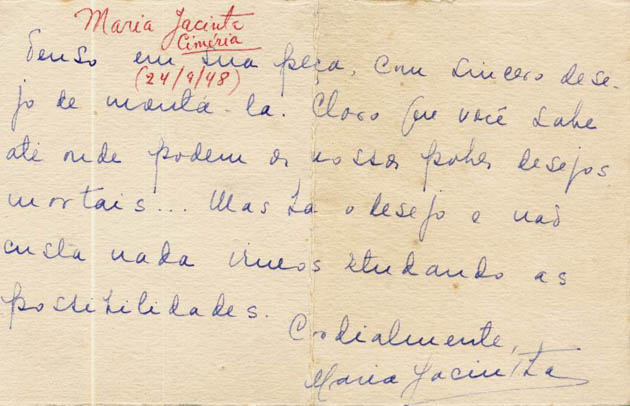 Maria Jacintha
Ciméria
(24/9/48)
Penso em sua peça, com sincero dese-
jo de montá-la. Claro que você sabe
até onde podem os nossos pobres desejos
mortais... Mas há o desejo e não
custa nada irmos estudando as
possibilidades.
Cordialmente,
Maria Jacintha